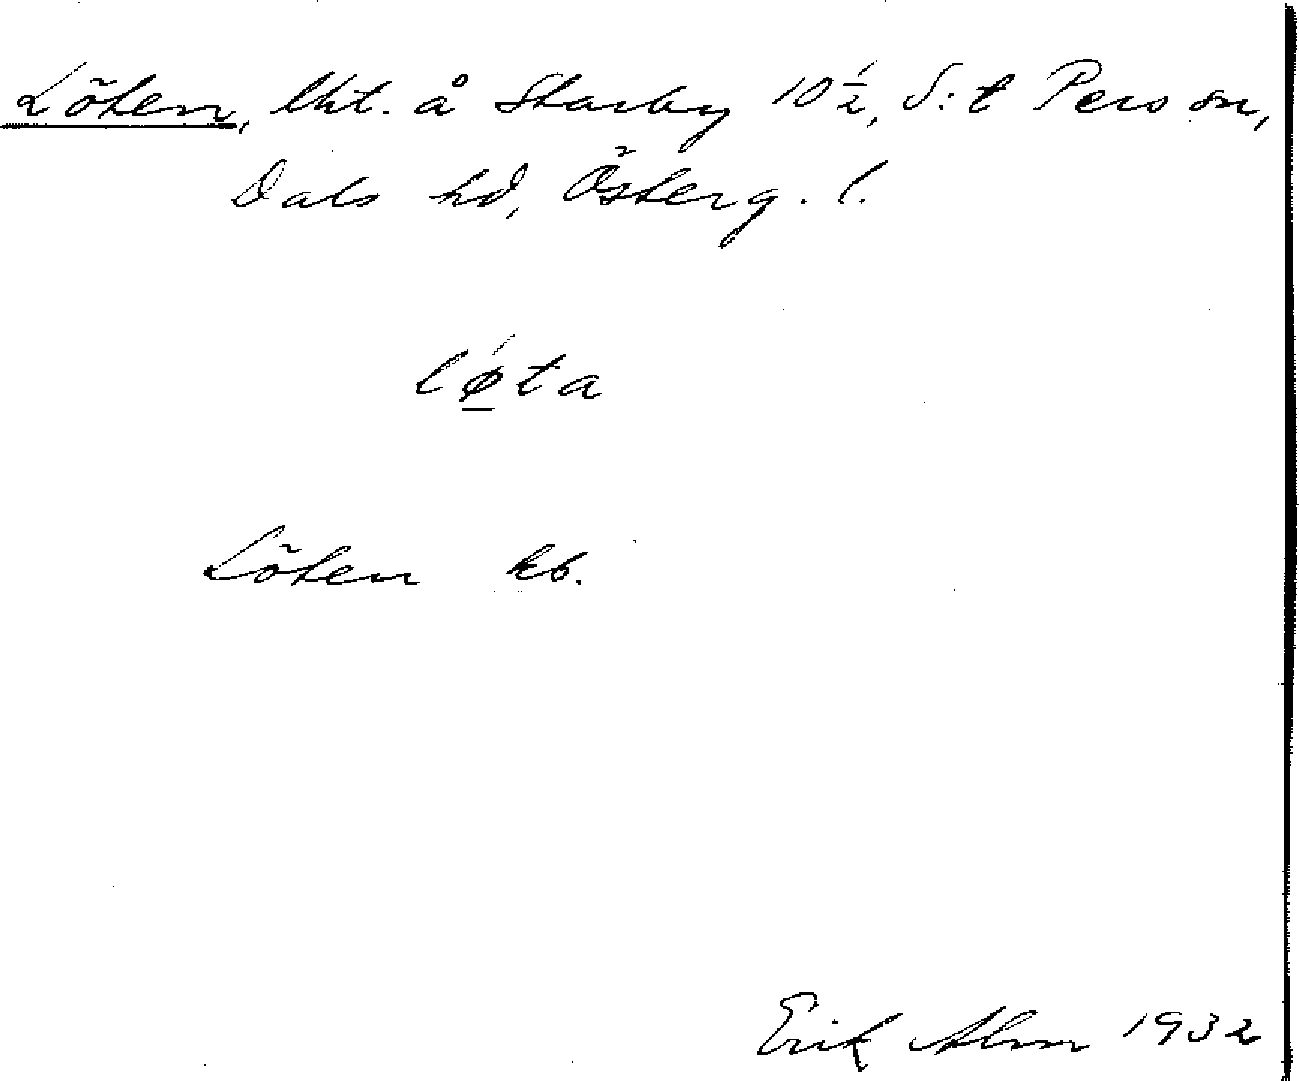 Löten, lht. å Starby 10 1/2, S:t Pers sn,
Dals hd, Österg. l.
lǿ̲ta
Löten kb.
Erik Alm 1932